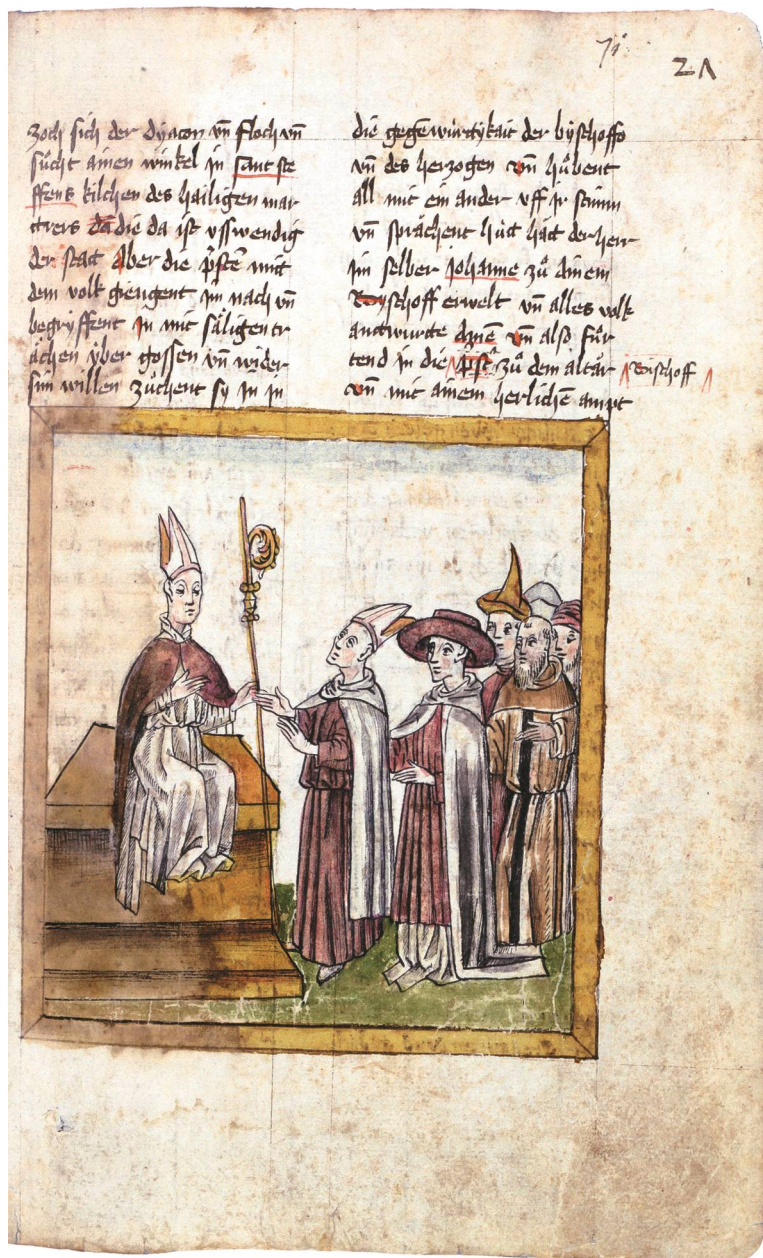 21
zoch sich der dyacon vñ floch vñ
sůcht ainen winkel in sant ste
ffens kilchen des hailigen mar
trers da die da ist vsswendig
der stat Aber die p̃stẽ mit
dem volk giengent im nach vñ
begryffent in mit säligen tr
ächen über gossen vñ wider
sin willen zuchent sy in in
die gegẽwürtykait der byschoffe
vñ des herzogen vñ hůbent
all mit ein ander vff ir stimm
vñ sprächent hüt hät der herr
im selber Johanne zů ainem
Byschoff erwelt vñ alles volk
antwurte Amẽ vñ also fůr
tend in die p̃st zů dem altär
Bischoff
vñ mit ainem herlichẽ ampt